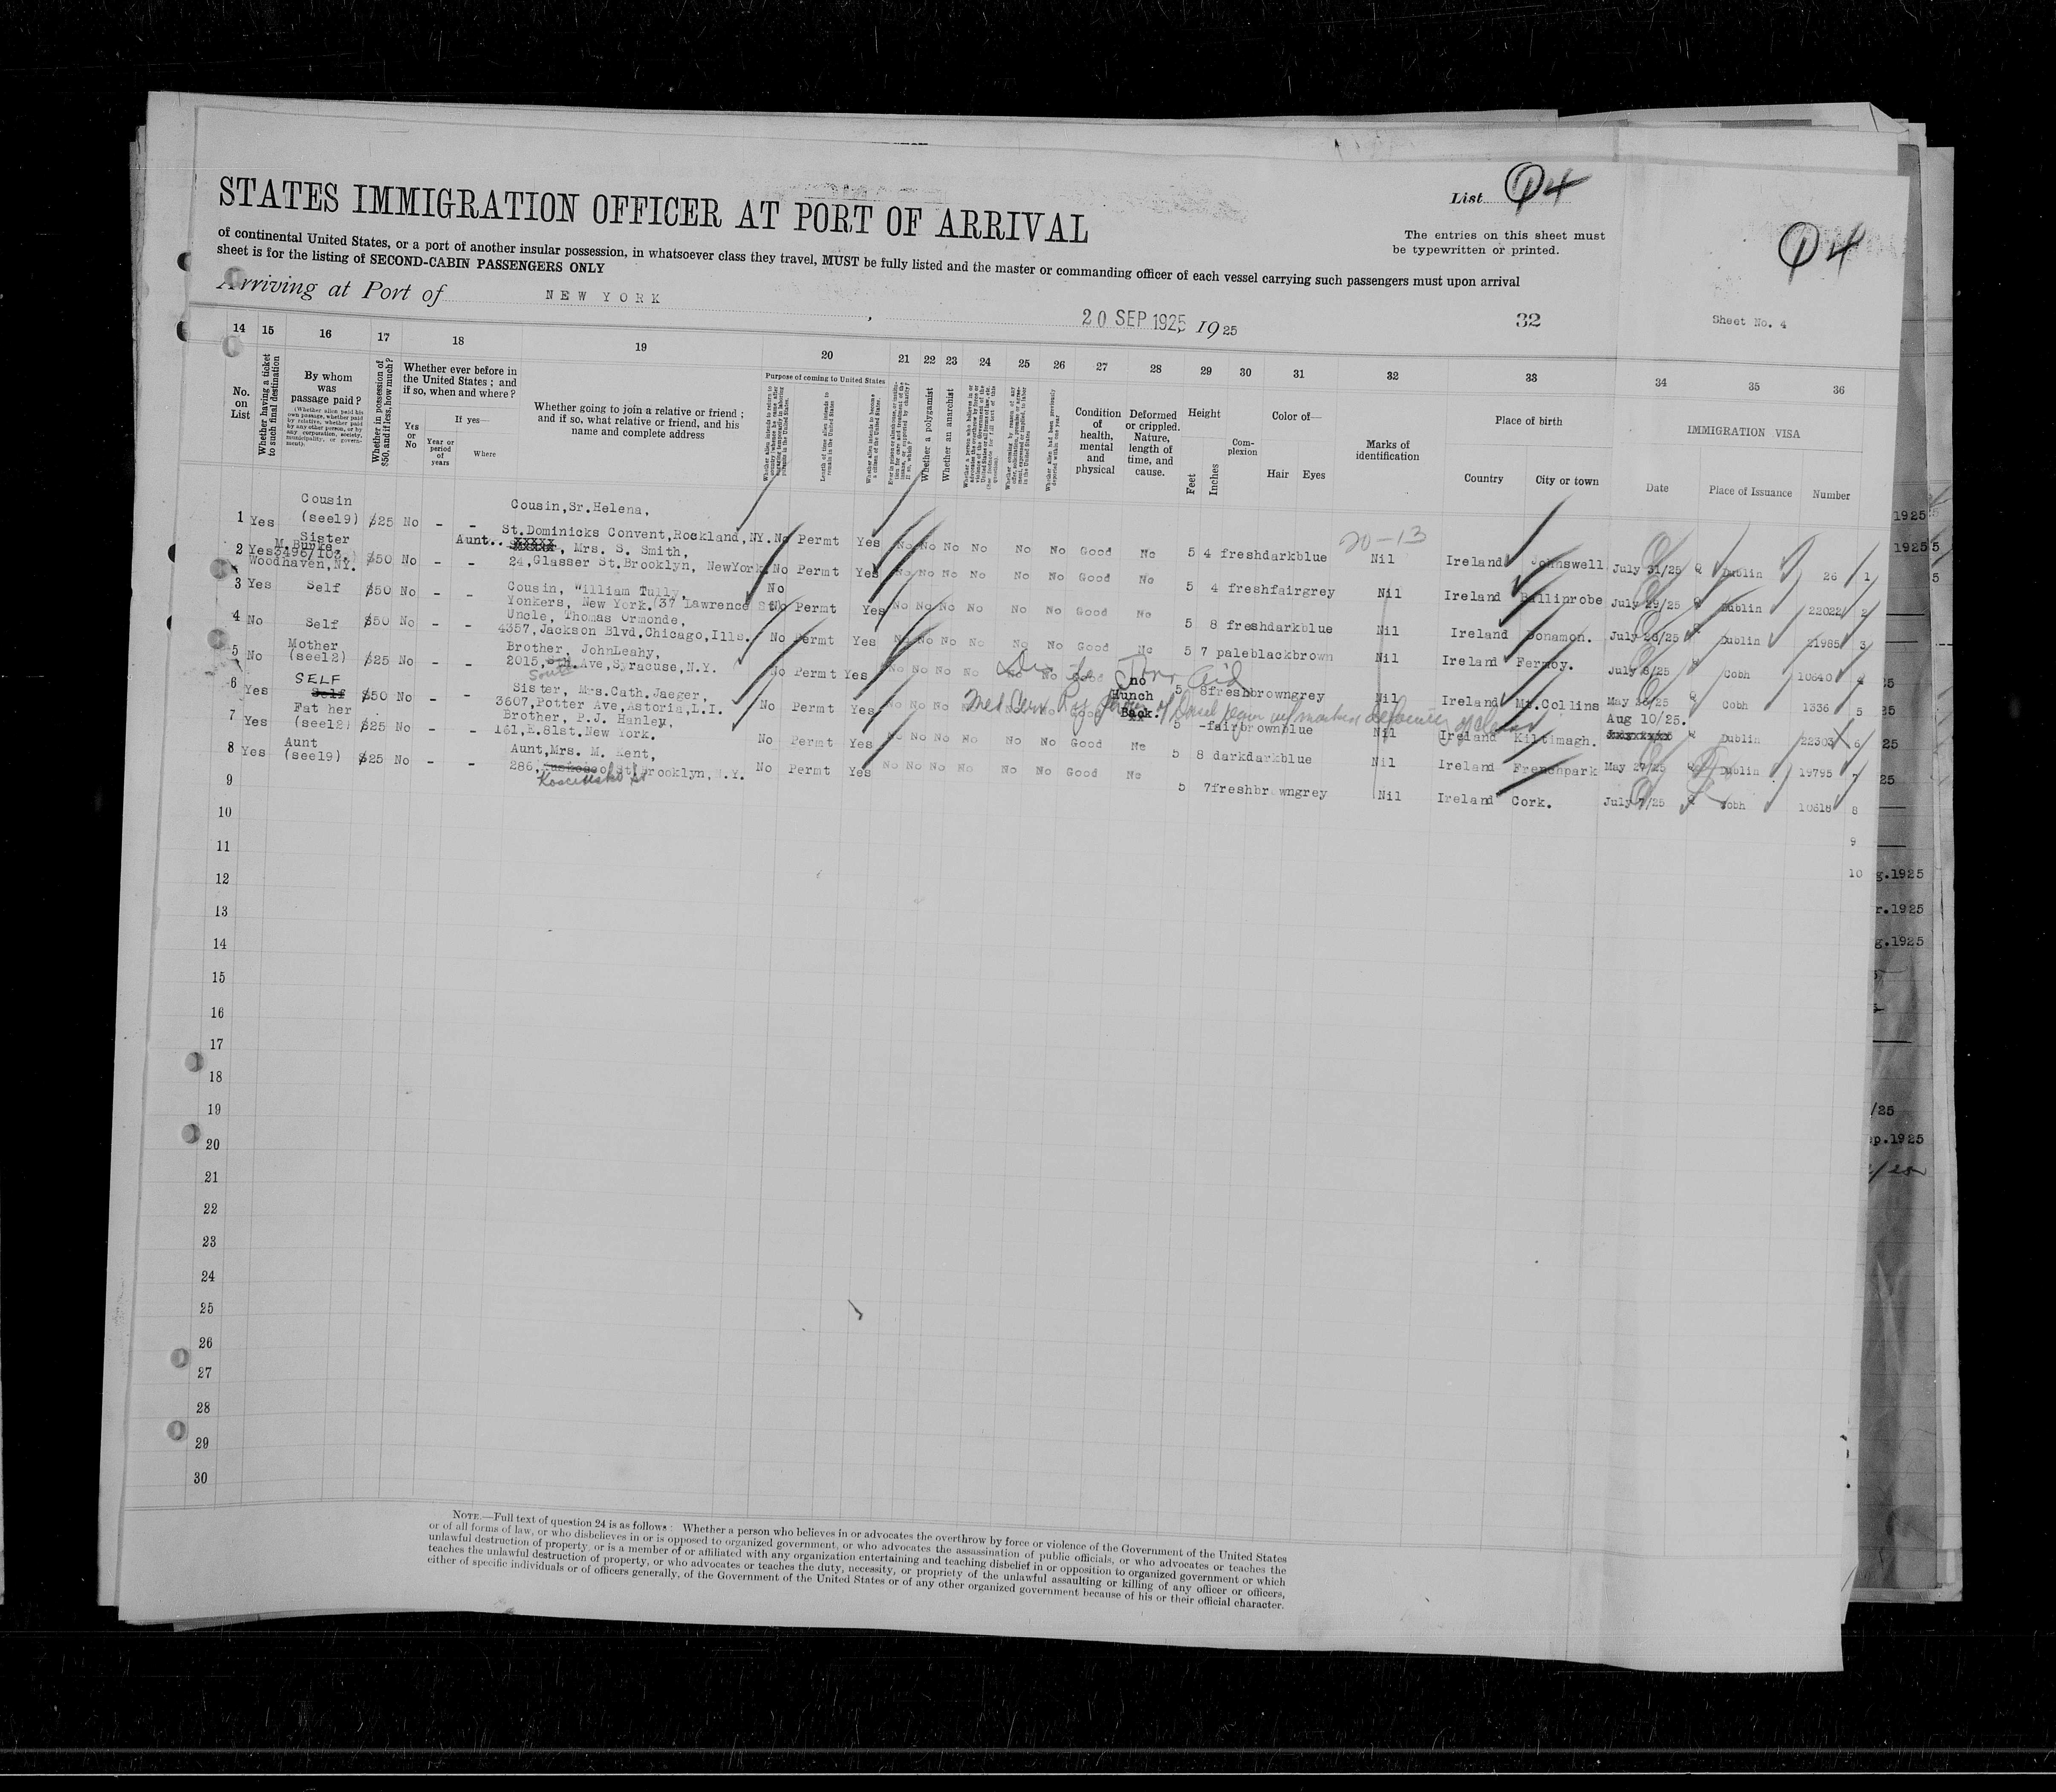 STATES IMMIGRATION OFFICER AT PORT OF ARRIVAL
List 4
4
of continental United States, or a port of another insular possession, in whatsoever class they travel, MUST be fully listed and the master or commanding officer of each vessel carrying such passengers must upon arrival
sheet is for the listing of SECOND-CABIN PASSENGERS ONLY
The entries on this sheet must
be typewritten or printed.
Arriving at Port of NEW YORK, 20 SEP 1925, 1925
32
Sheet No. 4
14 15 16 17 18 19 20 21 22 23 24 25 26 27 28 29 30 31 32 33 34 35 36
No. on List
Whether having a ticket to such final destination
By whom was passage paid?
(Whether alien paid his own passage, whether paid by relative, whether paid by any other person, or by any corporation, society, municipality, or government).
Whether in possession of $50, and if less, how much?
Whether ever before in the United States; and if so, when and where?
Yes or No
If yes—
Year or period of years
Where
Whether going to join a relative or friend; and if so, what relative or friend, and his name and complete address
Purpose of coming to United States
Length of time alien intends to remain in the United States
Whether alien intends to become a citizen of the United States.
Whether a polygamist
Whether an anarchist
Whether alien had been previously deported within one year
Condition of health, mental and physical
Deformed or crippled. Nature, length of time, and cause.
Height
Feet
Inches
Complexion
Color of—
Hair Eyes
Marks of identification
Place of birth
Country
City or town
IMMIGRATION VISA
Date
Place of Issuance
Number
20-13
1 Yes Cousin (see19) $25 No - - Cousin, Sr. Helena, St. Dominicks Convent, Rockland, NY. No Permt Yes No No No No No No Good No 5 4 fresh dark blue Nil Ireland Johnswell July 31/25 Q Dublin 26 1
2 Yes Sister M. Burke, Woodhaven, NY. $50 No - - Aunt.. xxxxx, Mrs. S. Smith, 24, Glasser St. Brooklyn, New York. No Permt Yes No No No No No No Good No 5 4 fresh fair grey Nil Ireland Ballinrobe July 29/25 Q Dublin 22022 2
3 Yes Self $50 No - - Cousin, William Tully, Yonkers, New York. (37 Lawrence St. No No Permt Yes No No No No No No Good No 5 8 fresh dark blue Nil Ireland Donamon. Dublin 21985 3
4 No Self $50 No - - Uncle, Thomas Ormonde, 4357, Jackson Blvd. Chicago, Ills. No Permt Yes No No No No No No Good No 5 7 pale black brown Nil Ireland Fermoy. July 8/25 Cobh 10640 4
5 No Mother (see12) $25 No - - Brother, John Leahy, 2015, South. Ave, Syracuse, N.Y. No Permt Yes No No No No No No Good no 5 8 fresh brown grey Nil Ireland Mt. Collins May 26/25 Q Cobh 1336 5
6 Yes SELF Self $50 No - - Sister, Mrs. Cath. Jaeger, 3607, Potter Ave, Astoria, L.I. No Permt Yes No No No No No No Good Hunch Back. 5 - fair brown blue Nil Ireland Kiltimagh. Aug 10/25. Q Dublin 22303 6
7 Yes Father (see12) $25 No - - Brother, P.J. Hanley, 161, E. 81st. New York. No Permt Yes No No No No No No Good No 5 8 dark dark blue Nil Ireland Frenchpark May 27/25 Q Dublin 19795 7
8 Yes Aunt (see19) $25 No - - Aunt, Mrs. M. Kent, 286, Kosciusko St Brooklyn, N.Y. No Permt Yes No No No No No No Good No 5 7 fresh brown grey Nil Ireland Cork. July 7/25 Q Cobh 10618 8
9
9
10
10
11
12
13
14
15
16
17
18
19
20
21
22
23
24
25
26
27
28
29
30
NOTE.—Full text of question 24 is as follows: Whether a person who believes in or advocates the overthrow by force or violence of the Government of the United States
or of all forms of law, or who disbelieves in or is opposed to organized government, or who advocates the assassination of public officials, or who advocates or teaches the
unlawful destruction of property, or is a member of or affiliated with any organization entertaining and teaching disbelief in or opposition to organized government or which
teaches the unlawful destruction of property, or who advocates or teaches the duty, necessity, or propriety of the unlawful assaulting or killing of any officer or officers,
either of specific individuals or of officers generally, of the Government of the United States or of any other organized government because of his or their official character.